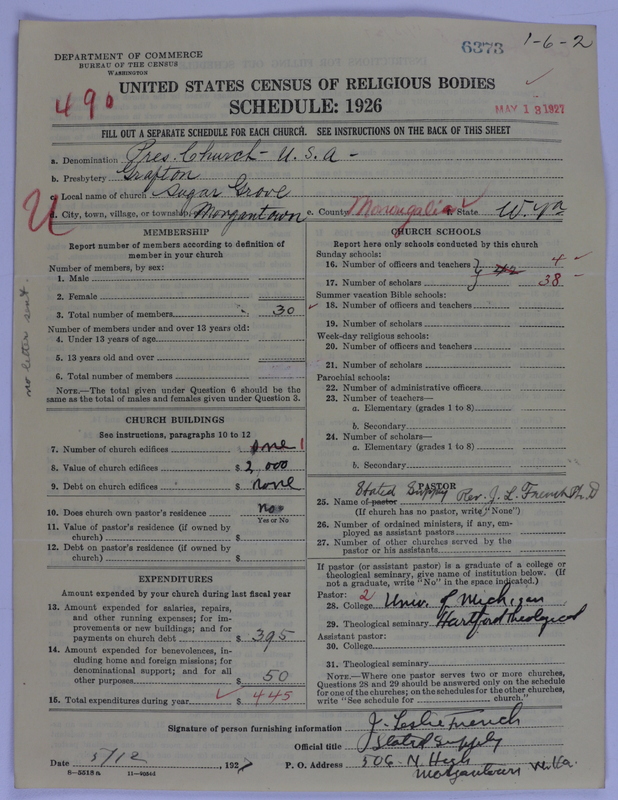 6373
1-6-2
DEPARTMENT OF COMMERCE
BUREAU OF THE CENSUS
WASHINGTON
490
UNITED STATES CENSUS OF RELIGIOUS BODIES
SCHEDULE: 1926
MAY 13 1927
FILL OUT A SEPARATE SCHEDULE FOR EACH CHURCH. SEE INSTRUCTIONS ON THE BACK OF THIS SHEET
a. Denomination Pres. Church - U.S.A -
b. Presbytery Grafton
c. Local name of church Sugar Grove
U
d. City, town, village, or township Morgantown e. County Monongalia f. State W. Va
no letter sent.
MEMBERSHIP
Report number of members according to definition of
member in your church
Number of members, by sex:
1. Male
2. Female
3. Total number of members 30
Number of members under and over 13 years old:
4. Under 13 years of age
5. 13 years old and over
6. Total number of members
NOTE.—The total given under Question 6 should be the
same as the total of males and females given under Question 3.
CHURCH BUILDINGS
See instructions, paragraphs 10 to 12
7. Number of church edifices one 1
8. Value of church edifices $ 2,000
9. Debt on church edifices $ none
10. Does church own pastor's residence no
Yes or No
11. Value of pastor's residence (if owned by
church) $
12. Debt on pastor's residence (if owned by
church) $
EXPENDITURES
Amount expended by your church during last fiscal year
13. Amount expended for salaries, repairs,
and other running expenses; for im-
provements or new buildings; and for
payments on church debt $ 395
14. Amount expended for benevolences, in-
cluding home and foreign missions; for
denominational support; and for all
other purposes $ 50
15. Total expenditures during year $ 445
CHURCH SCHOOLS
Report here only schools conducted by this church
Sunday schools:
16. Number of officers and teachers 42 4
17. Number of scholars 38
Summer vacation Bible schools:
18. Number of officers and teachers
19. Number of scholars
Week-day religious schools:
20. Number of officers and teachers
21. Number of scholars
Parochial schools:
22. Number of administrative officers
23. Number of teachers—
a. Elementary (grades 1 to 8)
b. Secondary
24. Number of scholars—
a. Elementary (grades 1 to 8)
b. Secondary
PASTOR
25. Name of pastor Stated Supply Rev. J. L. French Ph.D
(If church has no pastor, write "None")
26. Number of ordained ministers, if any, em-
ployed as assistant pastors
27. Number of other churches served by the
pastor or his assistants
If pastor (or assistant pastor) is a graduate of a college or
theological seminary, give name of institution below. (If
not a graduate, write "No" in the space indicated.)
Pastor: 2
28. College Univ. of Michigan
29. Theological seminary Hartford Theological
Assistant pastor:
30. College
31. Theological seminary
NOTE.—Where one pastor serves two or more churches,
Questions 28 and 29 should be answered only on the schedule
for one of the churches; on the schedules for the other churches,
write "See schedule for church."
Signature of person furnishing information J. Leslie French
Official title Stated Supply
Date 5/12, 1927 P. O. Address 506 N. High
Morgantown W. Va.
8-5518a 11-40544